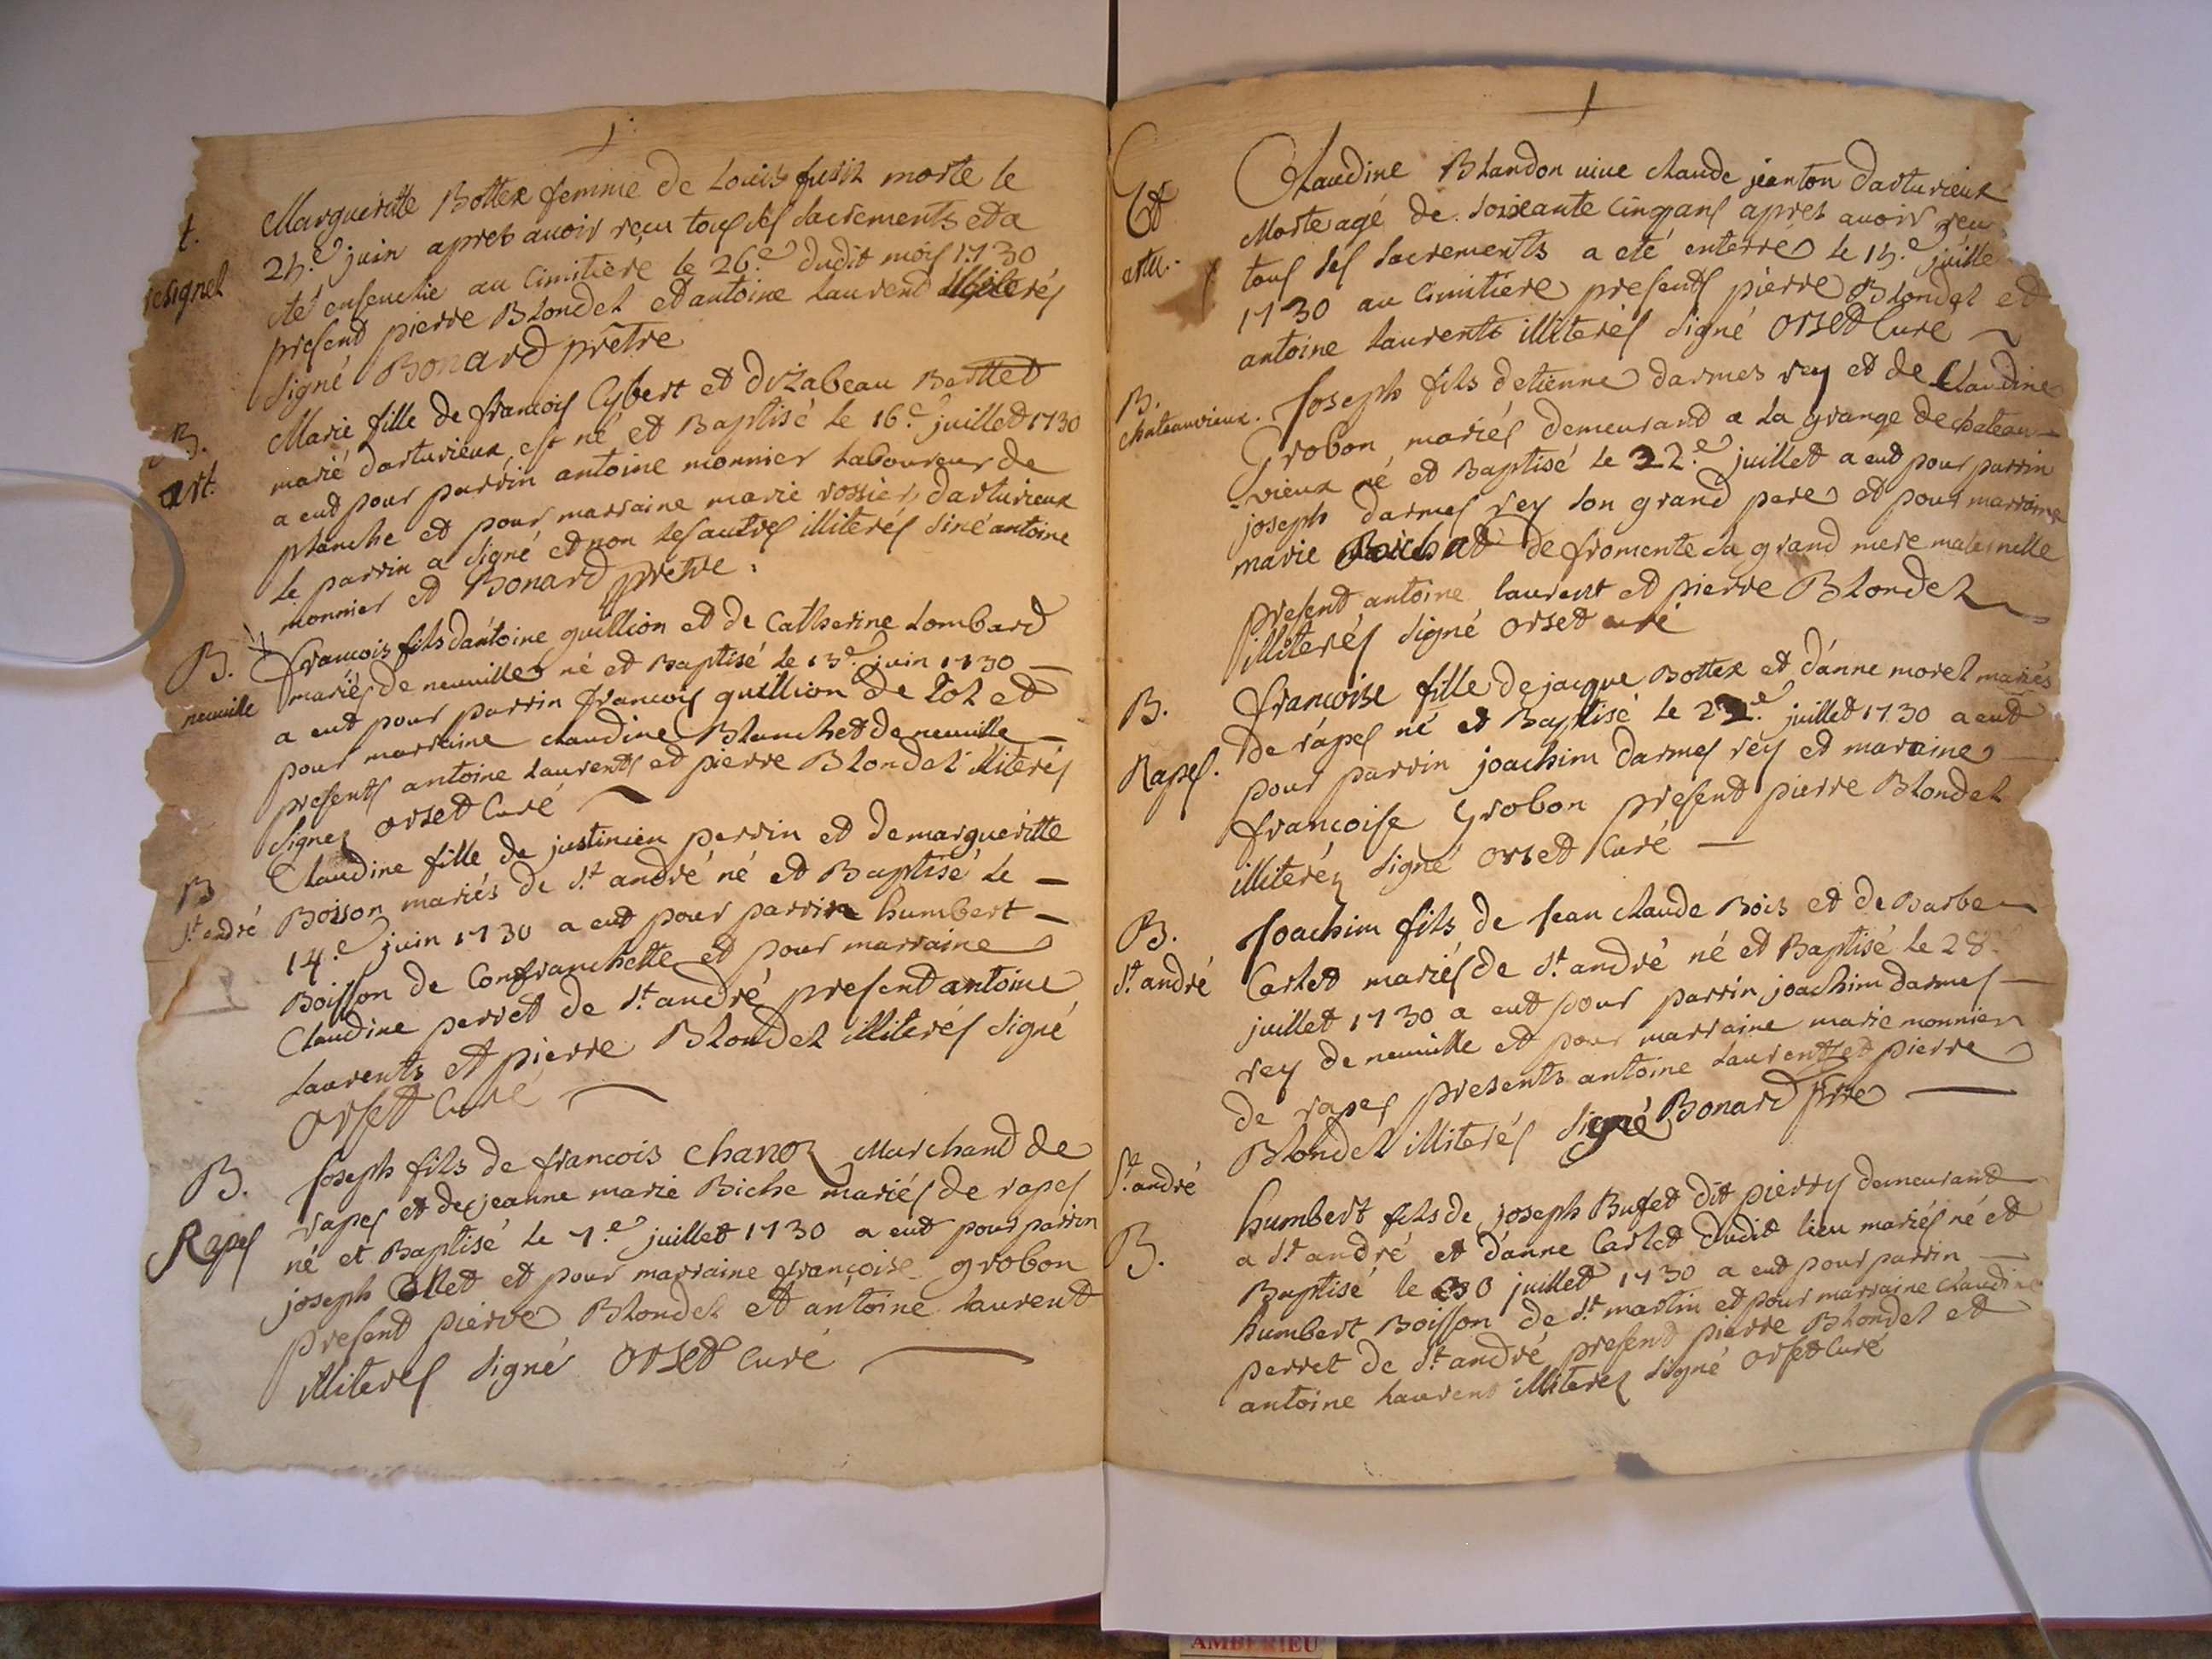 t.
Margueritte Bottex femme de Louis fusit morte le
25.e juin apres avoir reçu tous ses sacrements et a
été ensevelie au cimitiere le 26.e dudit mois 1730
present pierre Blondel et antoine Laurend illiterés
signé Bonard prêtre
B.
art.
Marie fille de francois Cybert et dizabeau
marié darturieux est né et Baptisé le 16.e juillet 1730
a eut pour parrin antoine monnier Laboureur de
planche et pour marraine marie rossier darturieux
Le parrin a signé et non les autres illiterés siné antoine
monnier et Bonard prêtre.
B.
neuville
francois fils dantoine guillion et de Catherine Lombard
mariés de neuville né et Baptisé le 13.e juin 1730 —
a eut pour parrin francois guillion de et
pour marraine claudine Blanchet de neuville —
presents antoine Laurents et pierre Blondel illiterés
signez orset Curé
B
st andré
Claudine fille de justinien perrin et de margueritte
Boisson mariés de st andré né et Baptisé le —
14.e juin 1730 a eut pour parrin humbert —
Boisson de Confranchette et pour marraine
Claudine perret de st andré present antoine
Laurents et pierre Blondel illiterés signé
orset Curé —
B.
Rapes
Joseph fils de francois Chanoz Marchand de
rapes et de jeanne marie Biche mariés de rapes
né et Baptisé le 7.e juillet 1730 a eut pour parrin
joseph et pour marraine françoise grobon
present pierre Blondel et antoine Laurent
illiteres signé orset Curé —
Et
artu.-
Claudine Blandon vive claude jeanton darturieux
Morte agé de soixante cinq ans apres avoir reçu
tous ses sacrements a eté enterré le 15.e juille
1730 au cimitiere presents pierre Blondel et
antoine Laurents illiterés signé orset Curé ~
B.
chateauvieux.
Joseph fils detienne darmes rey et de Claudine
Grobon mariés demeurand a La grange de chateau-
-vieux né et Baptisé le 22.e juillet a eut pour parrin
joseph darmes rey son grand pere et pour marraine
marie de fromente sa grand mere maternelle
present antoine laurent et pierre Blondel
illiterés signé orset curé
B.
Rapes.
françoise fille de jacque Bottex et d'anne morel mariés
de rapes né et Baptisé le 22.e juillet 1730 a eut
pour parrin joachim darmes rey et maraine —
françoise Grobon present pierre Blondel
illiteréz signé orset Curé —
B.
St. andré
Joachim fils de Jean claude Bois et de Barbe
Carlet mariés de st andré né et Baptisé le 28.e
juillet 1730 a eut pour parrin joachim darmes —
rey de neuville et pour marraine marie monnier
de rapes presents antoine Laurents et pierre
Blondel illiterés signé Bonard ptre —
St. andré
B.
humbert fils de joseph Bufet dit pierry demeurant
a st andré et d'anne Carlet dudit lieu mariés né et
Baptisé le 30 juillet 1730 a eut pour parrin —
humbert Boisson de st martin et pour marraine claudine
perret de st andré present pierre Blondel et
antoine Laurens illiterez signé orset Curé
AMBERIEU